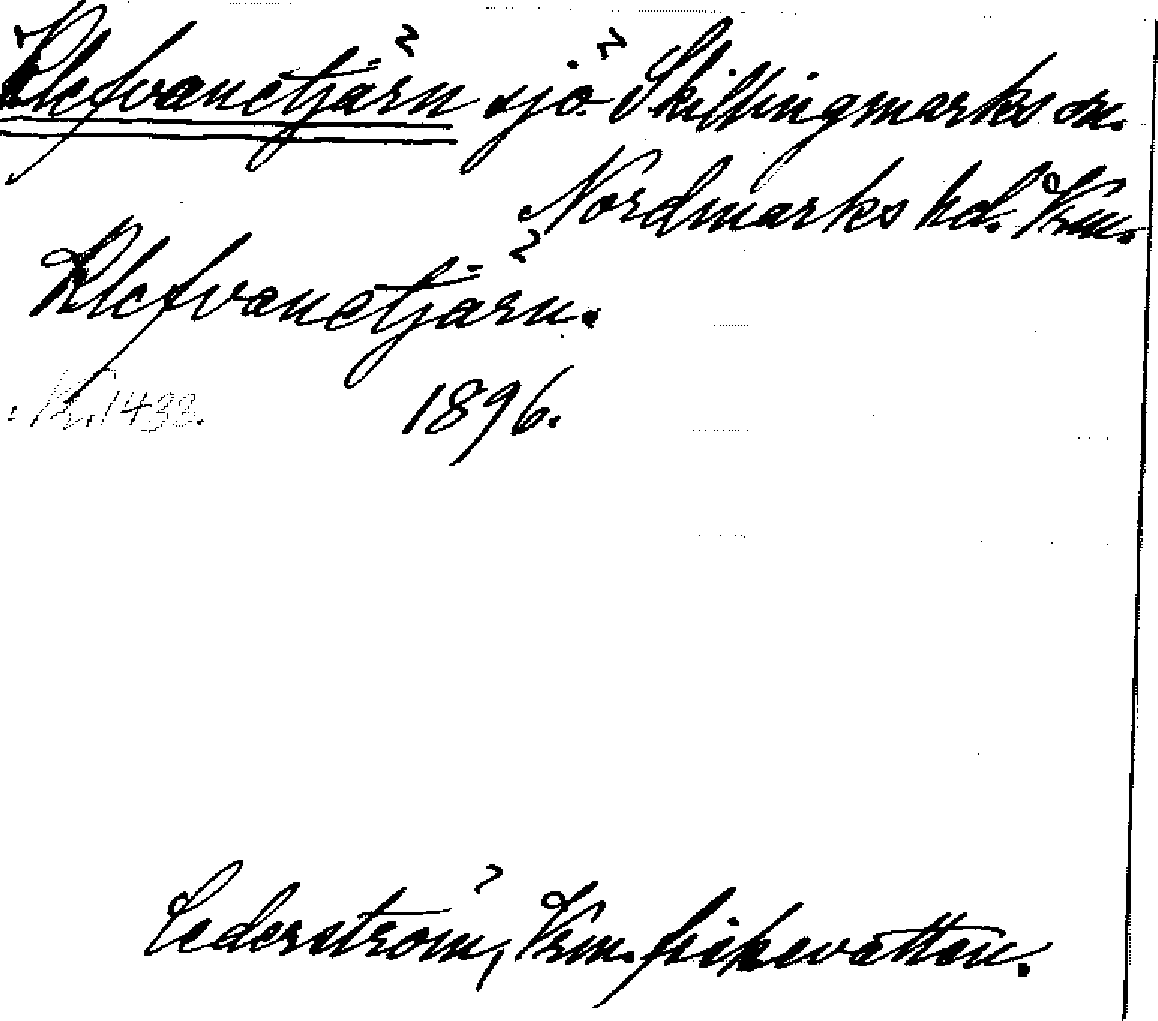 Klefvanetjärn sjö Skillingmarks sn.
Nordmarks hd. Vrm.
Klefvanetjärn.
1896.
Cederström, Vrm. fiskevatten.